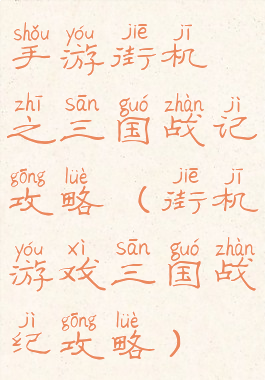 shǒu yóu jiē jī
手游街机
zhī sān guó zhàn jì
之三国战记
gōng lüè jiē jī
攻略（街机
yóu xì sān guó zhàn
游戏三国战
jì gōng lüè
纪攻略）